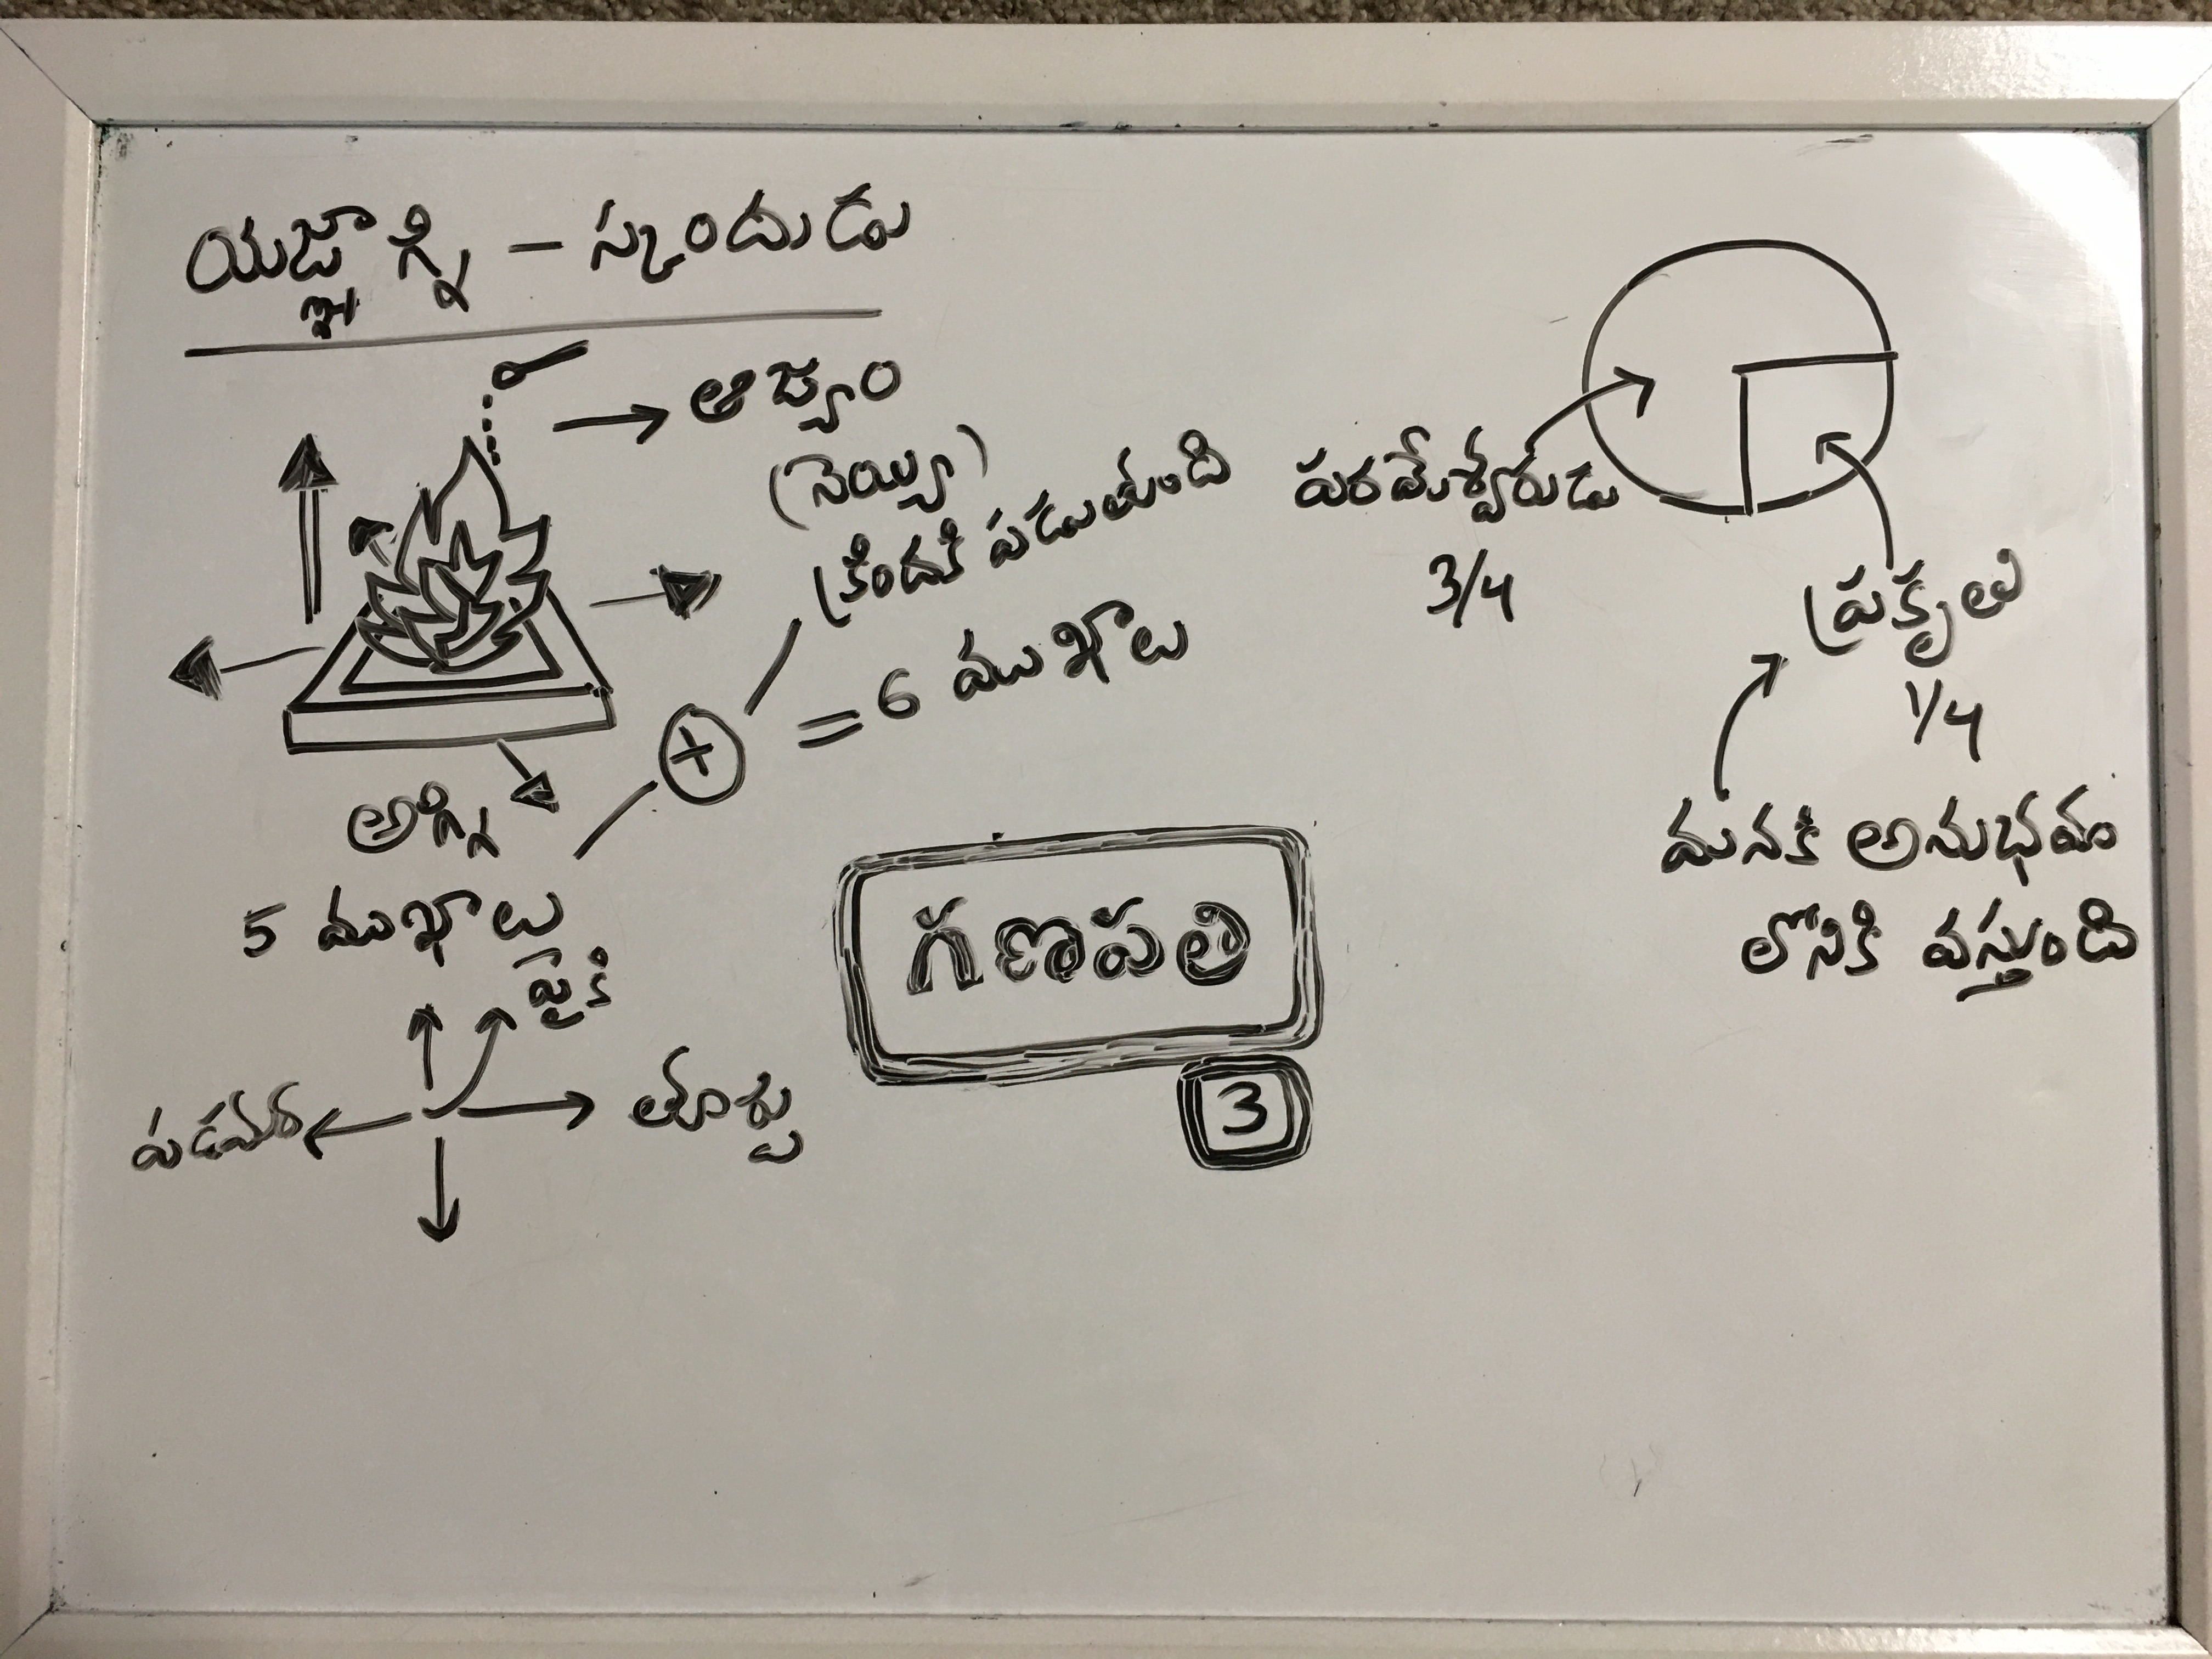 యజ్ఞాగ్ని - స్కందుడు
ఆజ్యం
(నెయ్యి)
క్రిందకి పడుతుంది
= 6 ముఖాలు
+
అగ్ని
5 ముఖాలు
పైకి
పడమర
తూర్పు
గణపతి
3
పరమేశ్వరుడు
3/4
ప్రకృతి
1/4
మనకి అనుభవం
లోనికి వస్తుంది